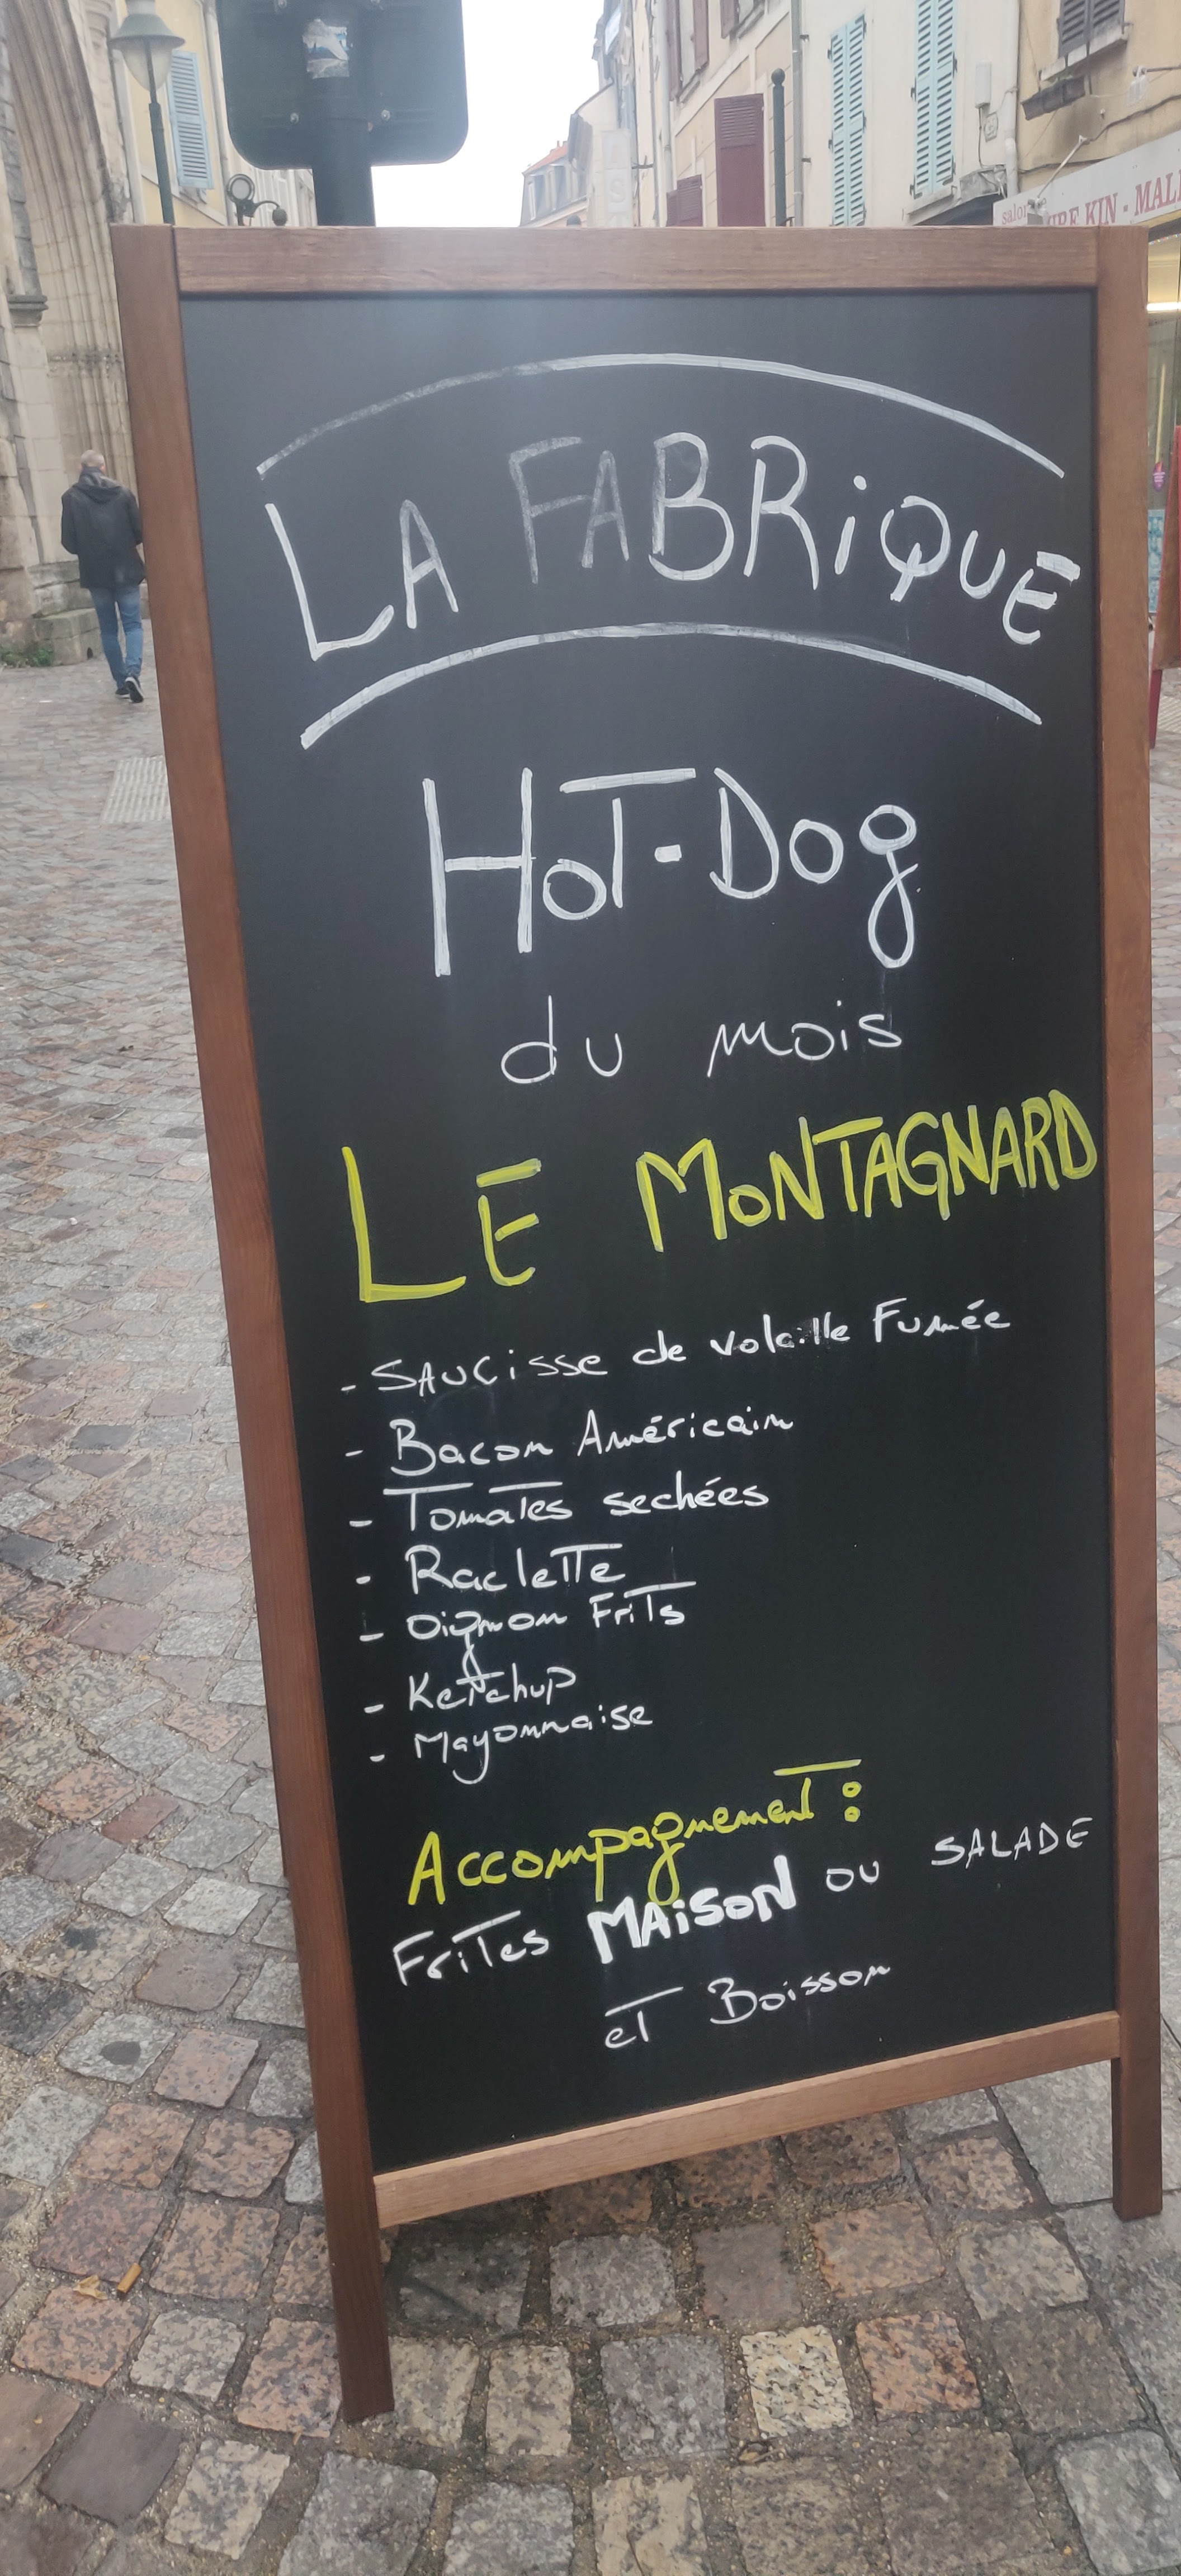 salon
KIN - MAL
LA FABRiQUE
HoT-Dog
du mois
LE MoNTAGNARD
- SAUCisse de volaille Fumée
- Bacon Américain
- Tomates sechées
- Raclette
- Oignon Frits
- Ketchup
- Mayonnaise
Accompagnement :
Frites MAiSoN ou SALADE
et Boisson